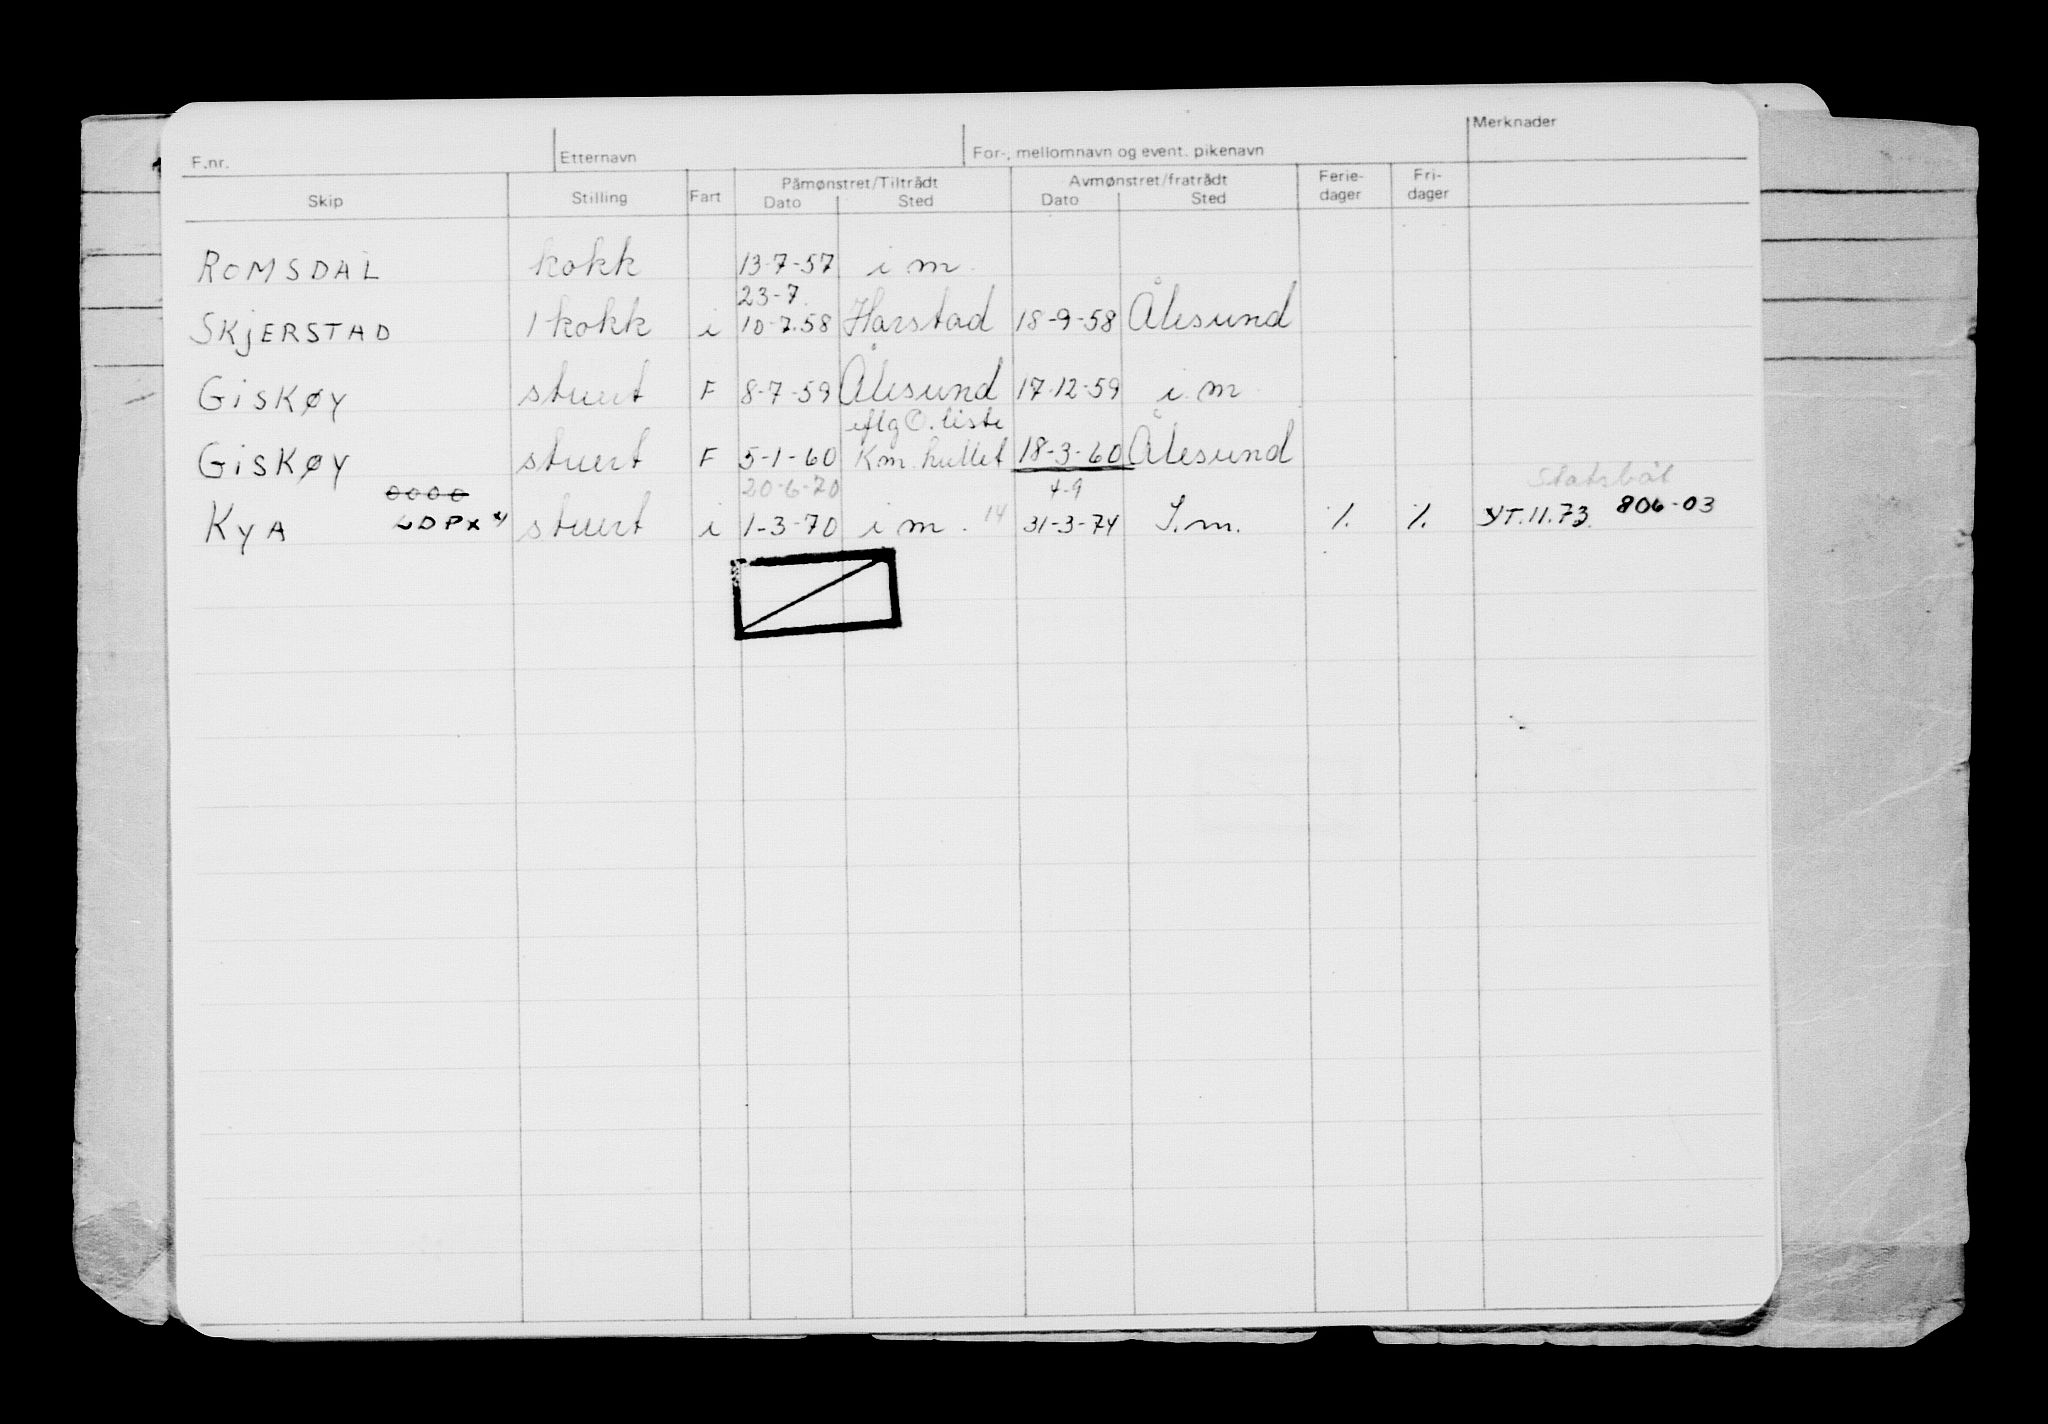 F.nr. Etternavn For-, mellomnavn og event. pikenavn Merknader
Skip Stilling Fart Påmønstret/Tiltrådt Dato Sted Avmønstret/fratrådt Dato Sted Ferie-dager Fri-dager
ROMSDAL kokk 13-7-57 i m.
23-7.
SKJERSTAD 1 kokk i 10-7.58 Harstad 18-9-58 Ålesund
GISKØY stuert F 8-7-59 Ålesund 17-12-59 i m.
iflg O. liste
GISKØY stuert F 5-1-60 K.m. hullet 18-3-60 Ålesund
0000 20-6-70 4-9 Statsbåt
KYA LDPX stuert i 1-3-70 i m. 14 31-3-74 I.m. % % YT.11.73. 806-03